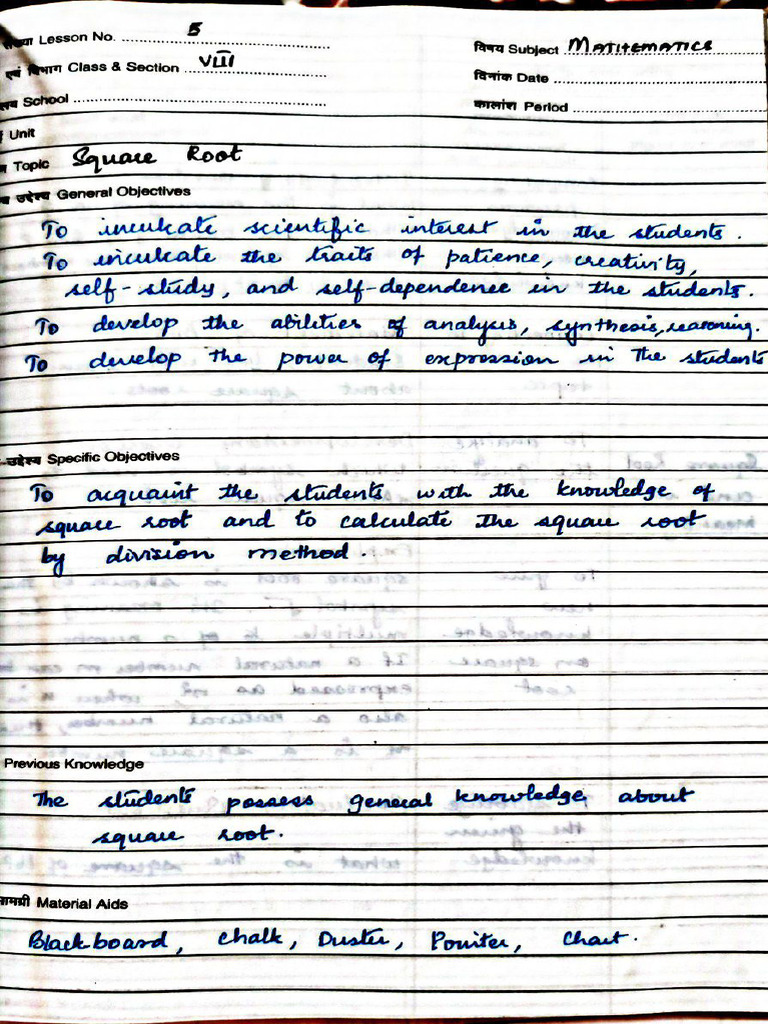 संख्या Lesson No. 5
विषय Subject MATHEMATICS
एवं विभाग Class & Section VIII
दिनांक Date
School
कालांश Period
Unit
Topic Square Root
उद्देश्य General Objectives
To inculcate scientific interest in the students.
To inculcate the traits of patience, creativity,
self-study, and self-dependence in the students.
To develop the abilities of analysis, synthesis, reasoning.
To develop the power of expression in the students
उद्देश्य Specific Objectives
To acquaint the students with the knowledge of
square root and to calculate the square root
by division method.
Previous Knowledge
The students possess general knowledge about
square root.
Material Aids
Blackboard, Chalk, Duster, Pointer, Chart.